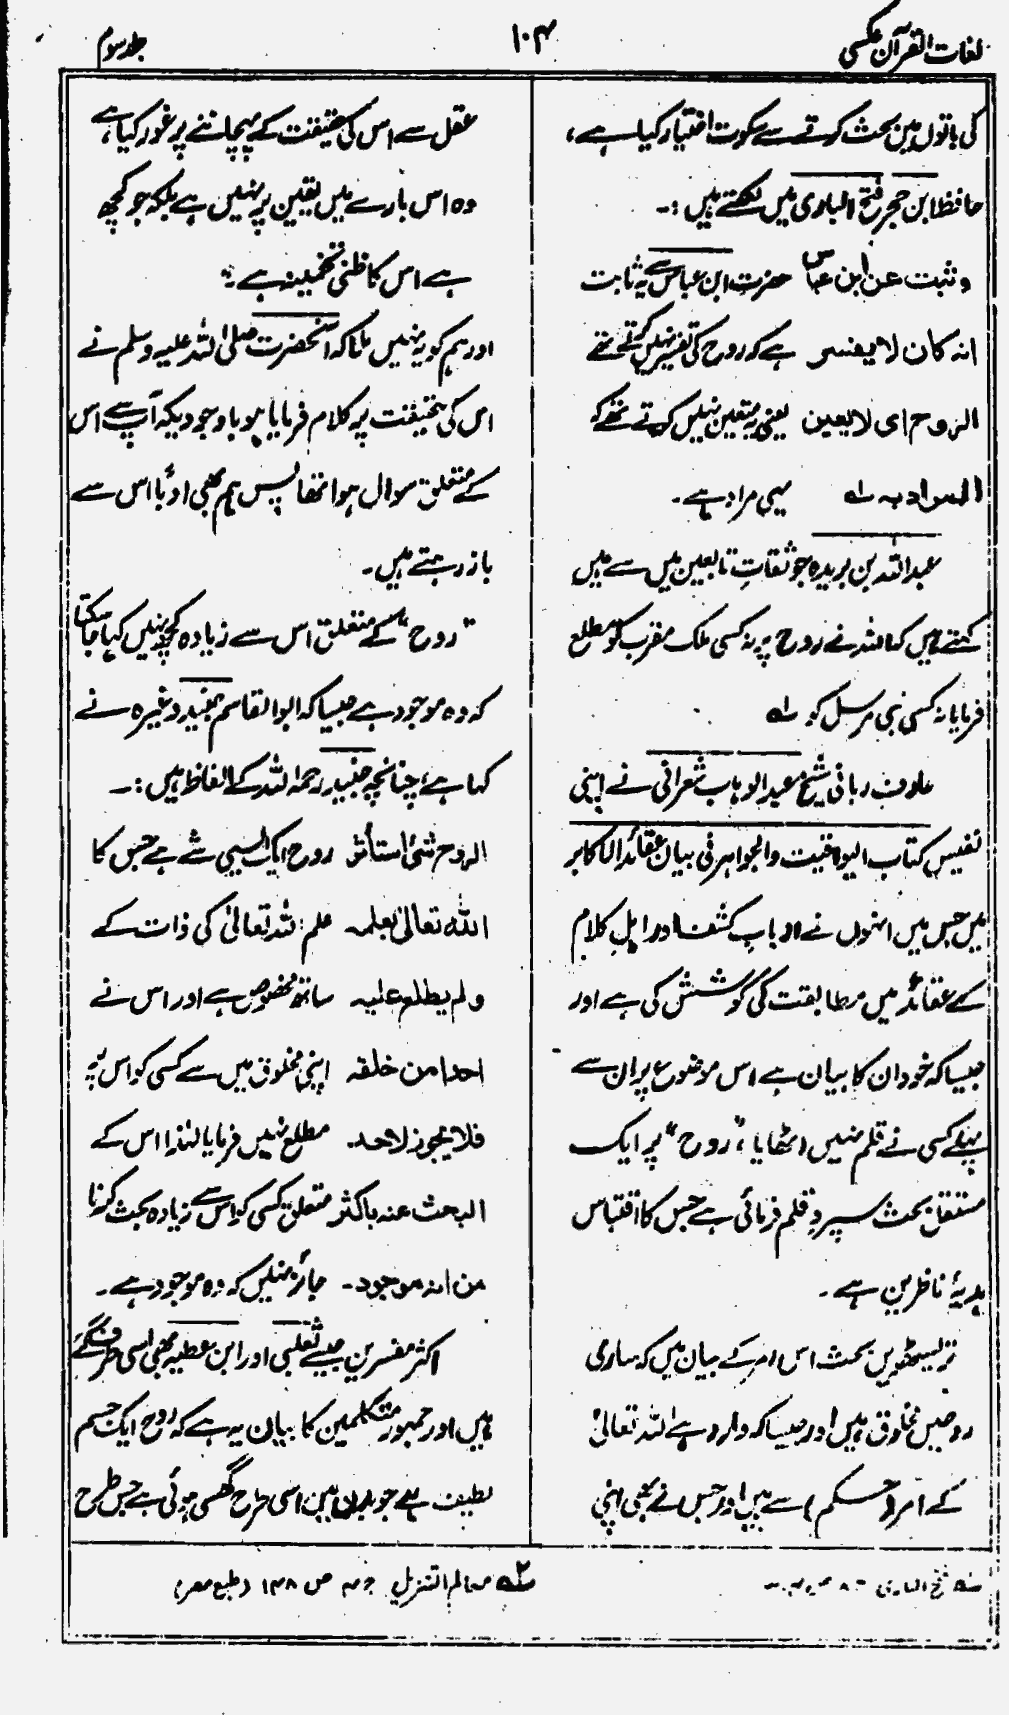 لغات القرآن عکسی
۱۰۴
جلد سوم
کی باتوں میں بحث کرنے سے سکوت اختیار کیا ہے،
حافظ ابن حجر فتح الباری میں لکھتے ہیں :۔
وثبت عن ابن عباس حضرت ابن عباس سے یہ ثابت
انه کان لا یفسر ہے کہ روح کی تفسیر نہیں کرتے تھے
الروح ای لا یعین یعنی یہ متعین نہیں کرتے تھے کہ
المراد به لہ یہی مراد ہے۔
عبداللہ بن بریدہ جو ثقات تابعین میں سے ہیں
کہتے ہیں کہ اللہ نے روح پر نہ کسی ملک مقرب کو مطلع
فرمایا نہ کسی نبی مرسل کو لہ
عارف ربانی شیخ عبدالوہاب شعرانی نے اپنی
نفیس کتاب الیواقیت والجواہر فی بیان عقائد الاکابر
میں جس میں انہوں نے ارباب کشف اور اہل کلام
کے عقائد میں مطابقت کی کوشش کی ہے اور
جیسا کہ خود ان کا بیان ہے اس موضوع پر ان سے
پہلے کسی نے قلم نہیں اٹھایا، "روح" پر ایک
مستقل بحث سپرد قلم فرمائی ہے جس کا اقتباس
ہدیۂ ناظرین ہے۔
تریسٹھویں بحث اس امر کے بیان میں کہ ساری
روحیں مخلوق ہیں اور جیسا کہ وارد ہے اللہ تعالیٰ
کے امر (حکم) سے ہیں اور جس نے بھی اپنی
لہ فتح الباری
عقل سے اس کی حقیقت کے پہچاننے پر غور کیا ہے
وہ اس بارے میں یقین پر نہیں ہے بلکہ جو کچھ
ہے اس کا ظنی تخمینہ ہے"
اور ہم کو یہ نہیں ملا کہ آنحضرت صلی اللہ علیہ وسلم نے
اس کی حقیقت پر کلام فرمایا ہو باوجودیکہ آپ سے اس
کے متعلق سوال ہوا تھا پس ہم بھی ادبًا اس سے
باز رہتے ہیں۔
"روح" کے متعلق اس سے زیادہ کچھ نہیں کہا جا سکتا
کہ وہ موجود ہے جیسا کہ ابو القاسم جنید وغیرہ نے
کہا ہے، چنانچہ جنید رحمہ اللہ کے الفاظ ہیں :۔
الروح شئ استأثر روح ایک ایسی شے ہے جس کا
الله تعالیٰ بعلمه علم اللہ تعالیٰ کی ذات کے
ولم یطلع علیه ساتھ مخصوص ہے اور اس نے
احدا من خلقه اپنی مخلوق میں سے کسی کو اس پر
فلا یجوز لاحد مطلع نہیں فرمایا لہٰذا اس کے
البحث عنه باکثر متعلق کسی کو اس سے زیادہ بحث کرنا
من انه موجود۔ جائز نہیں کہ وہ موجود ہے۔
اکثر مفسرین جیسے ثعلبی اور ابن عطیہ بھی اسی طرف گئے
ہیں اور جمہور متکلمین کا بیان یہ ہے کہ روح ایک جسم
لطیف ہے جو بدن میں اسی طرح گھسی ہوئی ہے جس طرح
۲ لہ معالم التنزیل ج ۴ ص ۱۴۸ (طبع مصر)